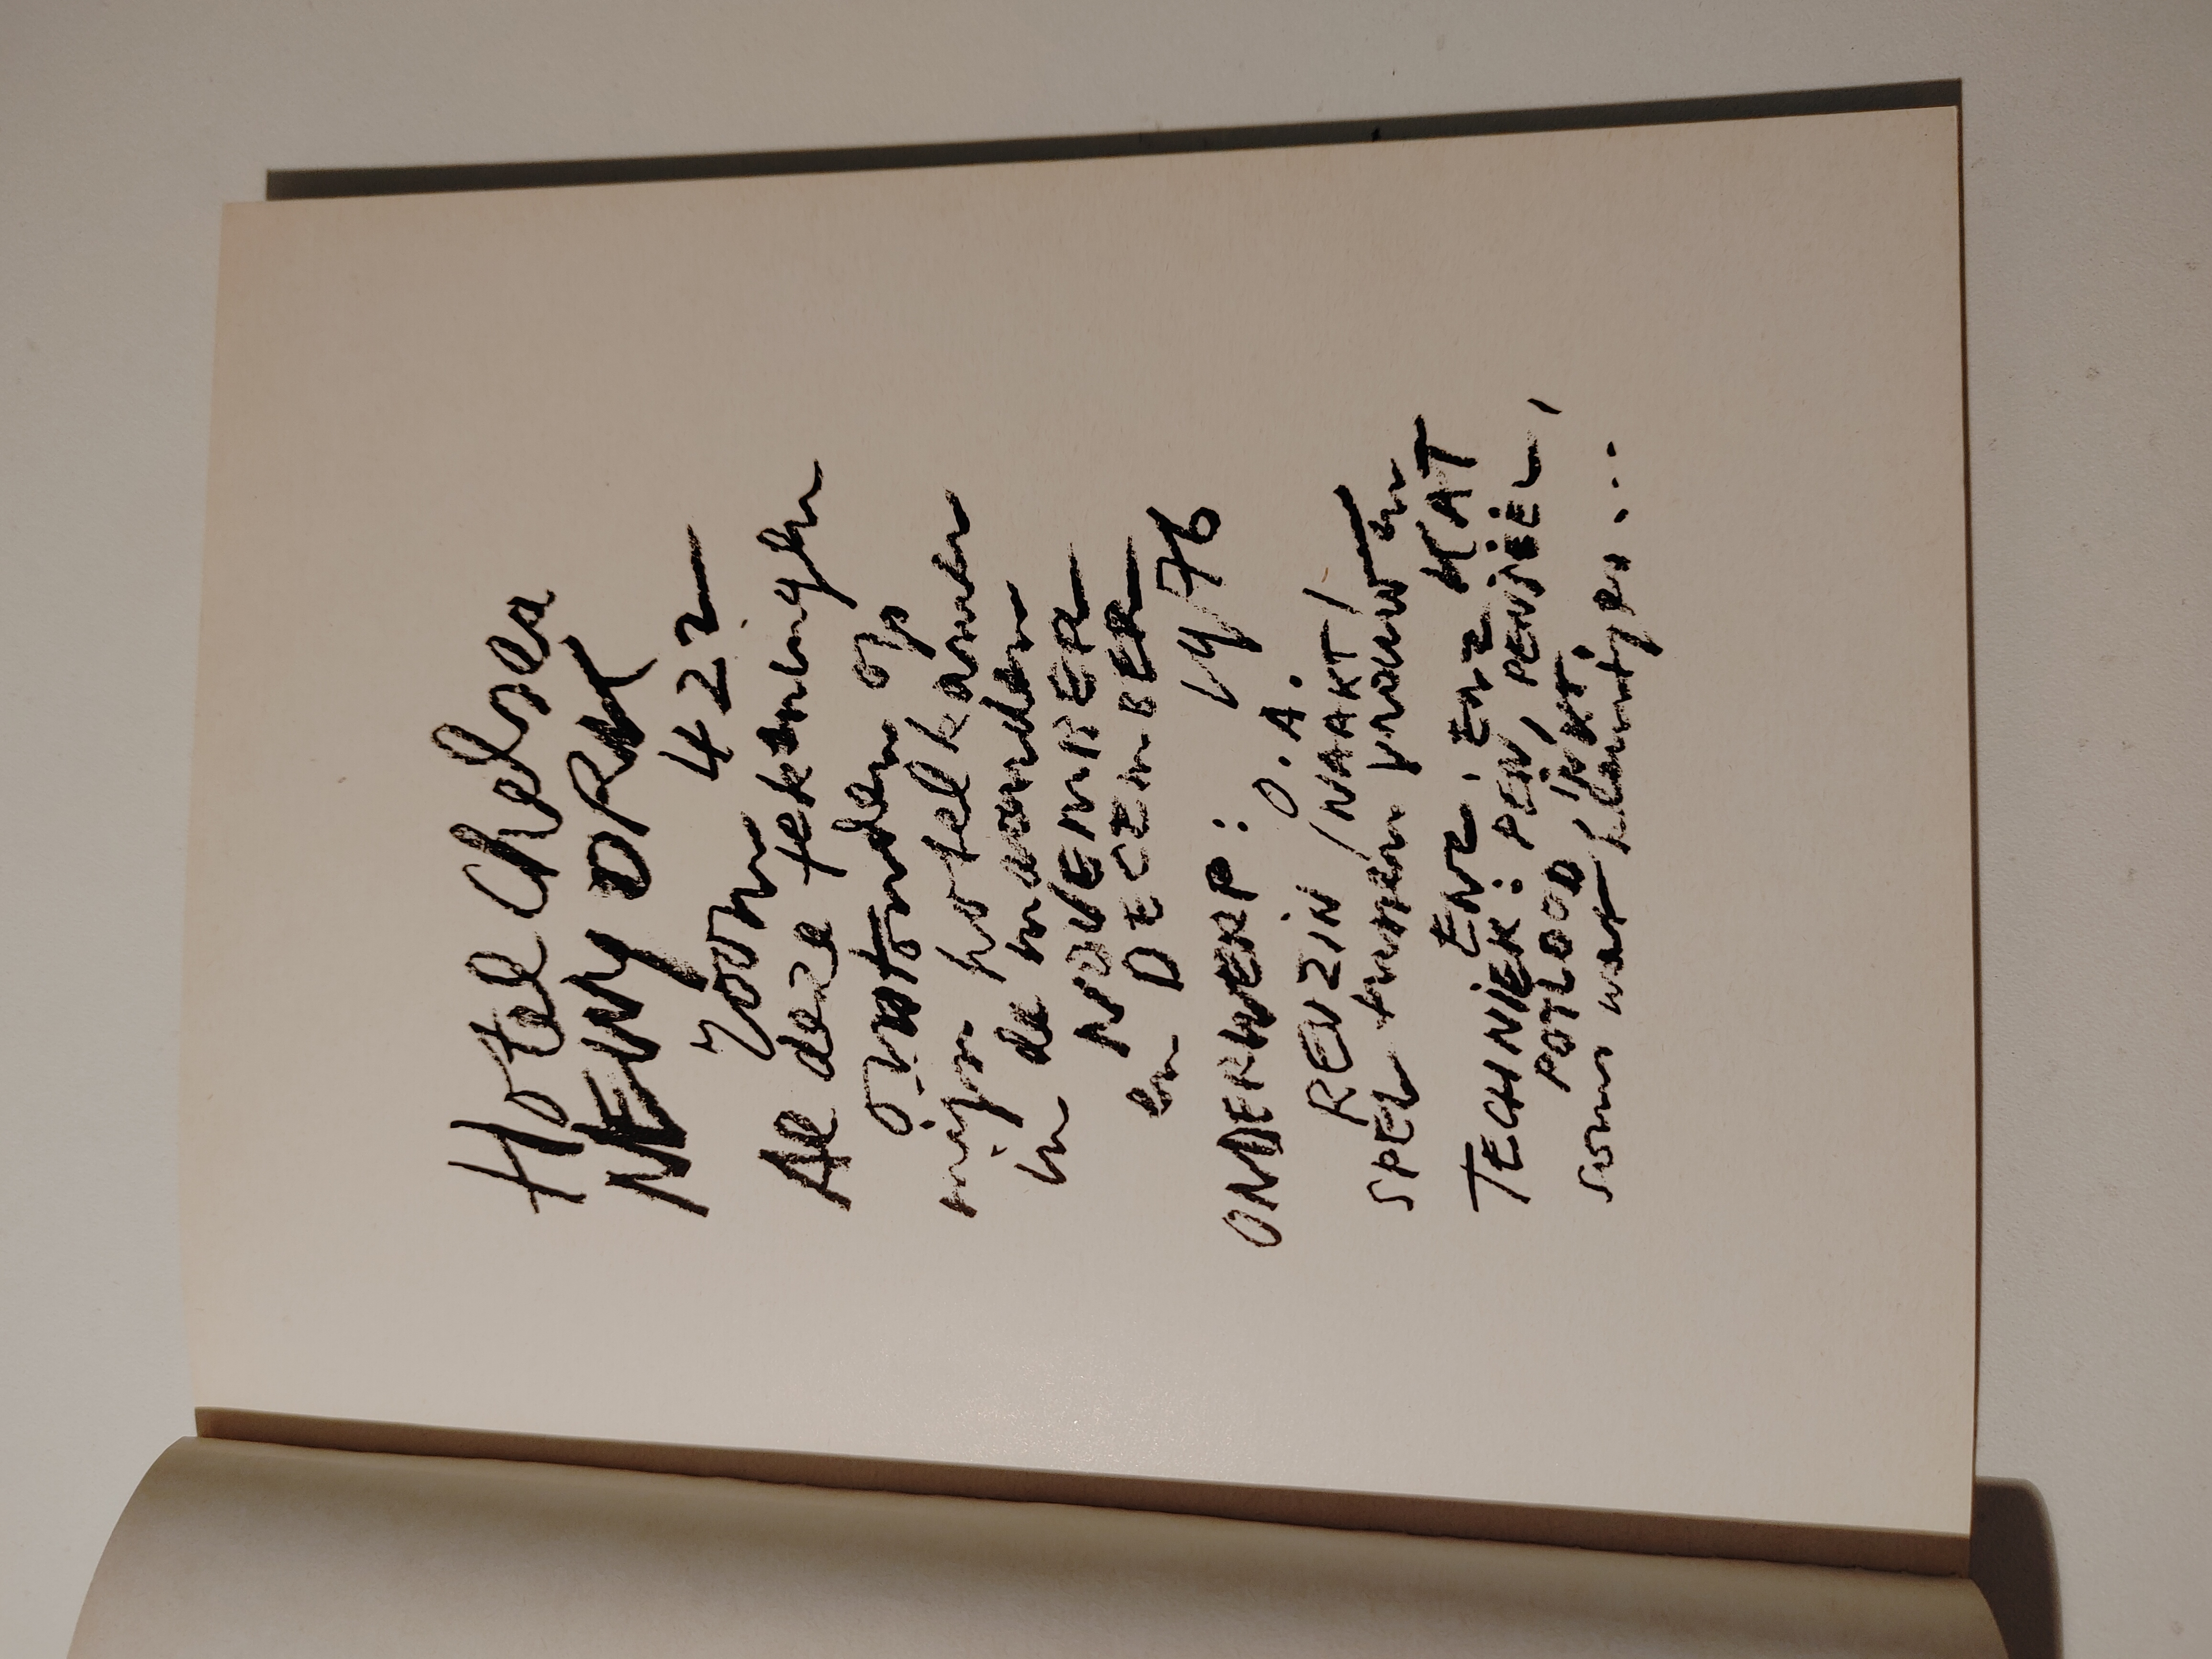 Hotel Chelsea
NEW YORK
room 422
Al deze tekeningen
ontstonden op
mijn hotelkamer
in de maanden
NOVEMBER
en DECEMBER
1976
ONDERWERP: O.A.
REUZIN /NAAKT/
SPEL tussen vrouw en
KAT
ENZ. ENZ. ENZ
TECHNIEK: PEN, PENSEEL,
POTLOOD, INKT.
soms wat kleurtjes...